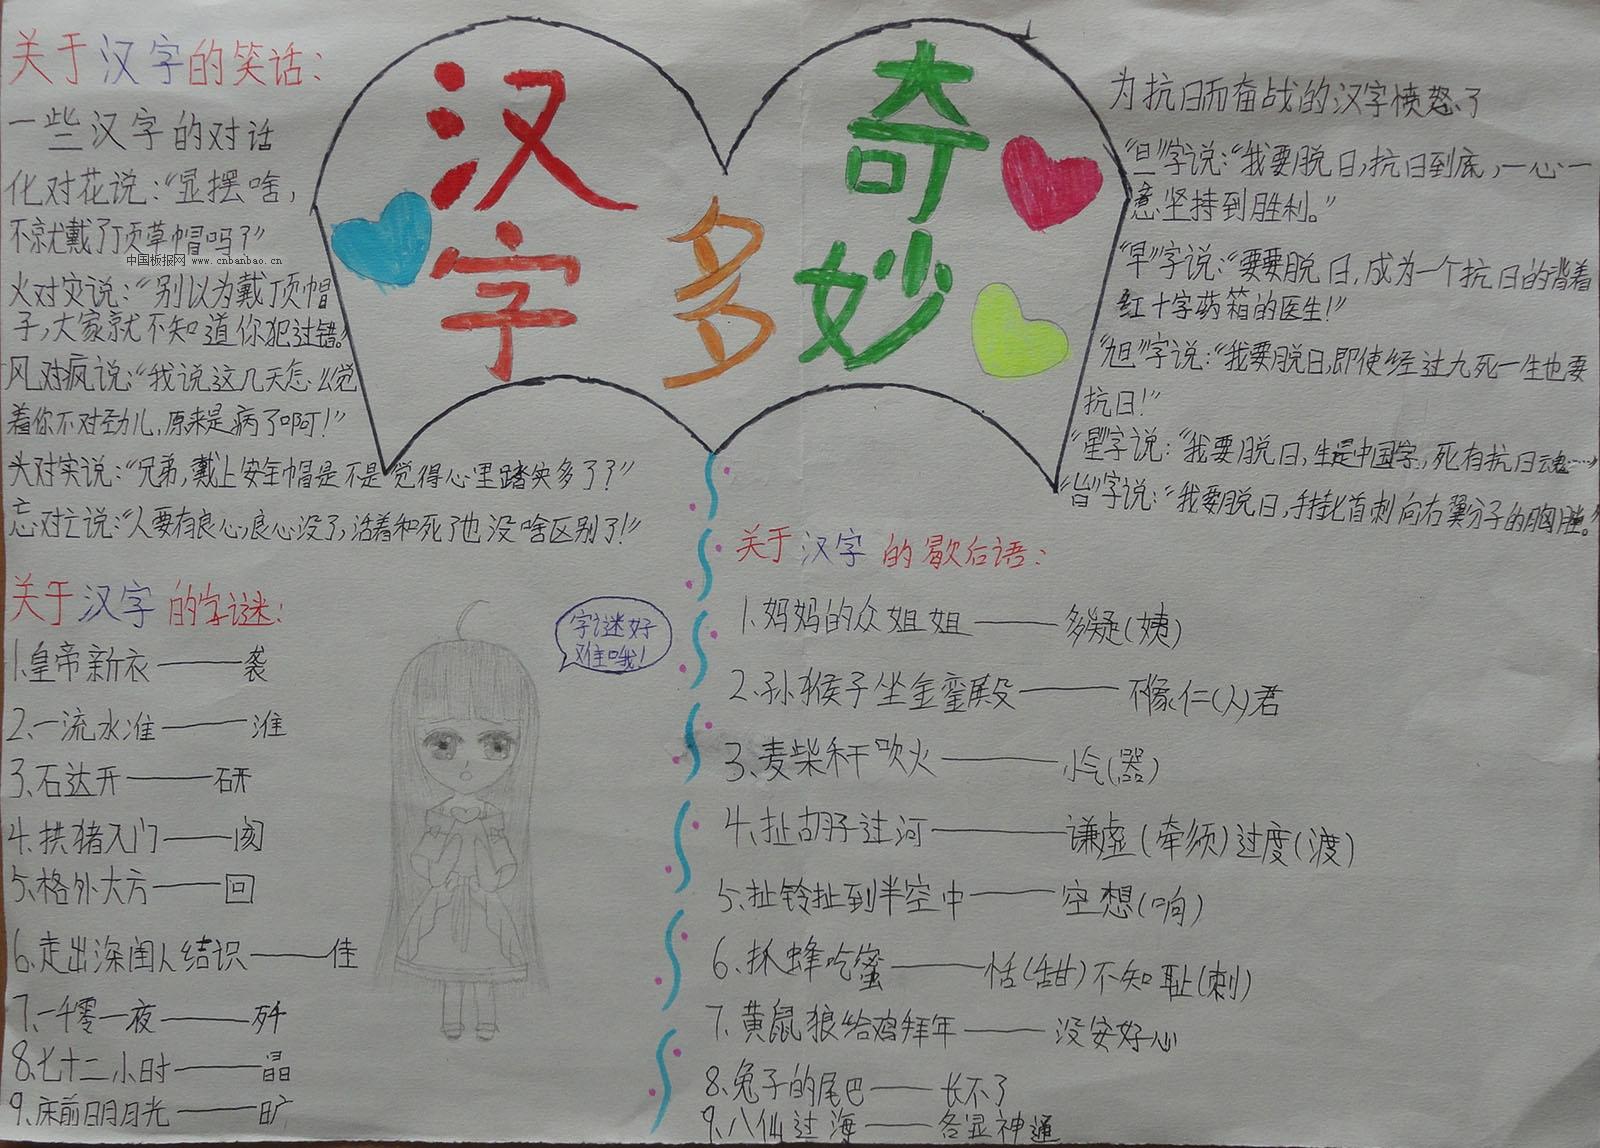 汉字多奇妙
关于汉字的笑话：
一些汉字的对话
化对花说：“显摆啥，
不就戴了顶草帽吗？”
中国板报网 www.cnbanbao.cn
火对灾说：“别以为戴丁页帽
子，大家就不知道你犯过错。”
风对疯说：“我说这几天怎么觉
着你不对劲儿，原来是病了啊！”
头对实说：“兄弟，戴上安全帽是不是觉得心里踏实多了？”
忘对亡说：“人要有良心，良心没了，活着和死了也没啥区别了！”
关于汉字的字谜：
1、皇帝新衣——袭
2、一流水准——淮
3、石达开——研
4、拱猪入门——阂
5、格外大方——回
6、走出深闺人结识——佳
7、一千零一夜——歼
8、七十二小时——晶
9、床前明月光——旷
字谜好
难哦！
为抗日而奋战的汉字愤怒了
“旦”字说：“我要脱日，抗日到底，一心一
意坚持到胜利。”
“早”字说：“要要脱日，成为一个抗日的背着
红十字药箱的医生！”
“旭”字说：“我要脱日，即使经过九死一生也要
抗日！”
“星”字说：“我要脱日，生是中国字，死有抗日魂……”
“旨”字说：“我要脱日，手持匕首刺向右翼分子的胸膛。”
关于汉字的歇后语：
1、妈妈的众姐姐——多疑（姨）
2、孙猴子坐金銮殿——不像仁（人）君
3、麦柴秆吹火——小气（器）
4、扯胡子过河——谦虚（牵须）过度（渡）
5、扯铃扯到半空中——空想（响）
6、抓蜂吃蜜——恬（甜）不知耻（刺）
7、黄鼠狼给鸡拜年——没安好心
8、兔子的尾巴——长不了
9、八仙过海——各显神通